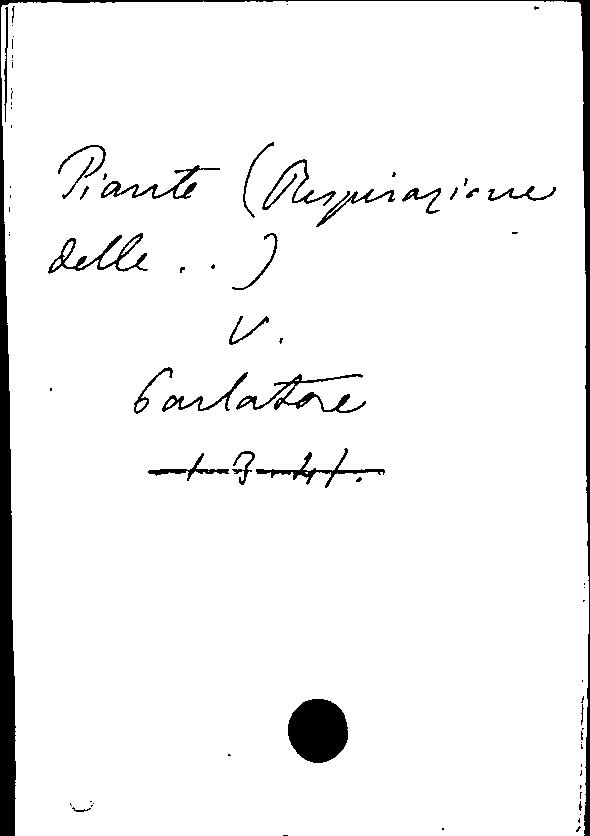 Piante (Respirazione
delle . . )
V.
Parlatore